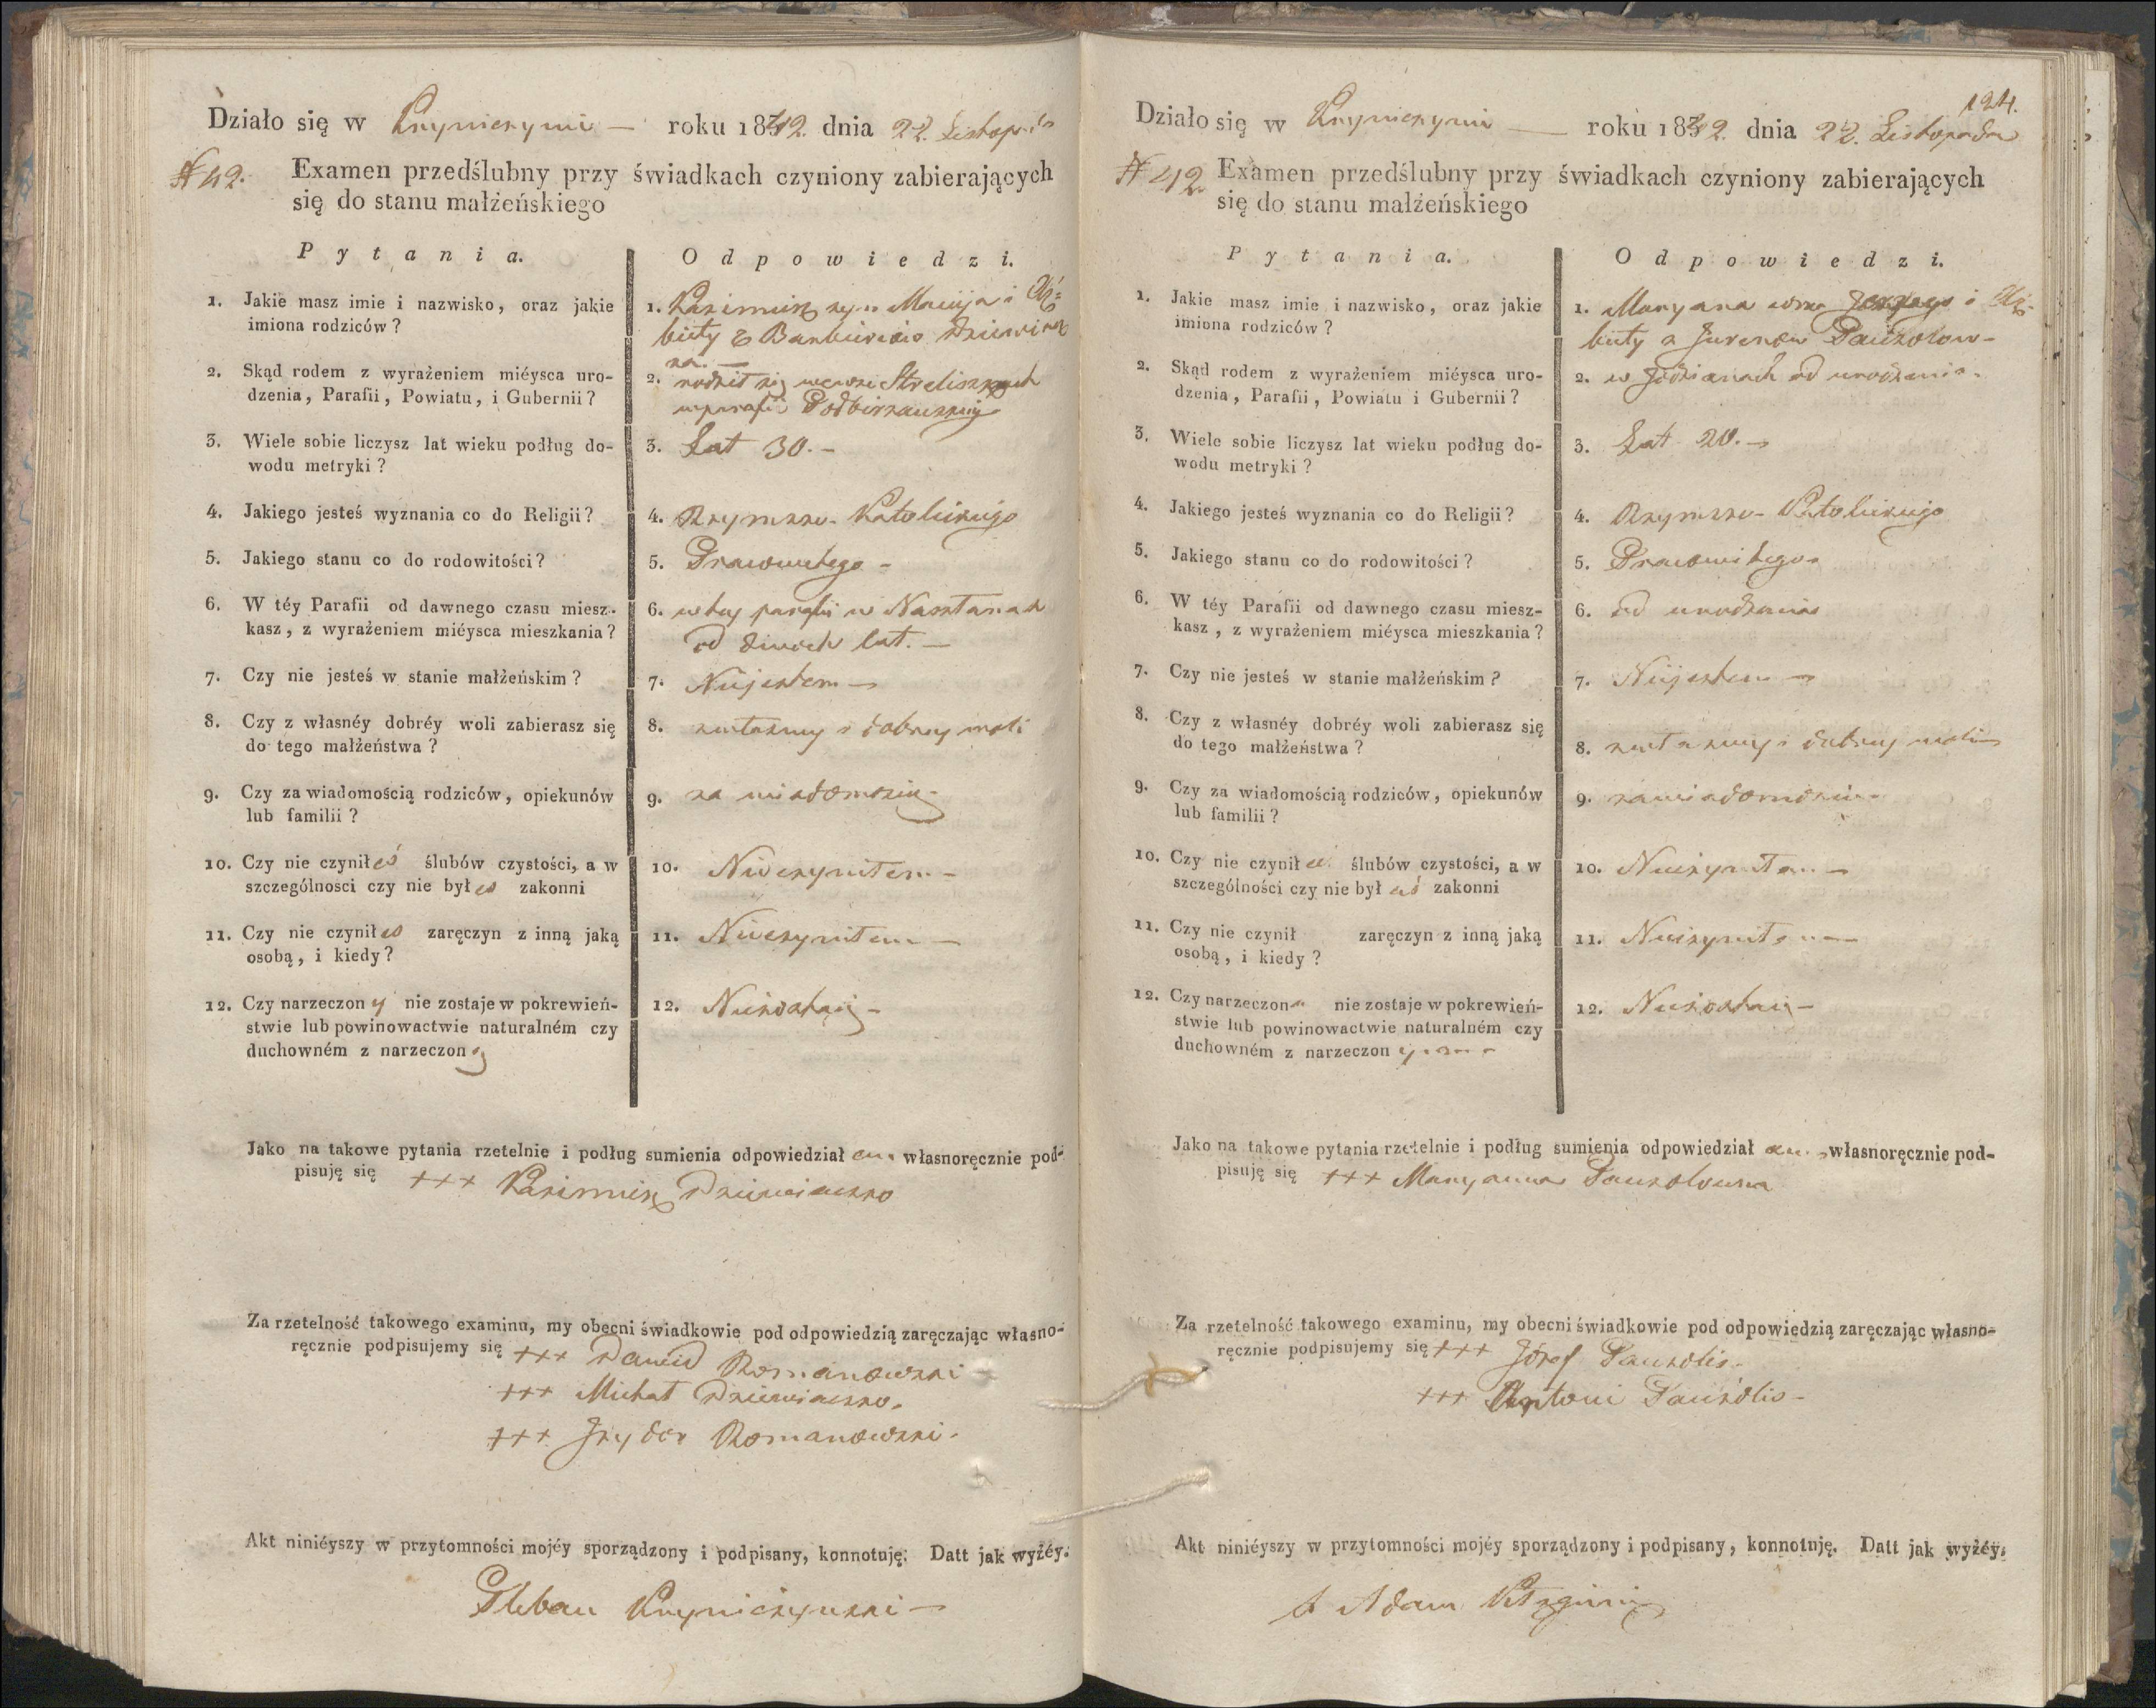 Działo się w Krynicznymi — roku 1842. dnia 22. Listopada
N 42. Examen przedślubny przy świadkach czyniony zabierających
się do stanu małżeńskiego
Pytania. Odpowiedzi.
1. Jakie masz imie i nazwisko, oraz jakie
imiona rodziców?
1. Kazimierz syn Macieja i Elż=
biety z
2. Skąd rodem z wyrażeniem miéysca uro-
dzenia, Parafii, Powiatu, i Gubernii?
2. rodził się we wsi
w parafii
3. Wiele sobie liczysz lat wieku podług do-
wodu metryki?
3. Lat 30. -
4. Jakiego jesteś wyznania co do Religii?
4. Rzymsko-Katolickiego
5. Jakiego stanu co do rodowitości?
5. Prawowitego -
6. W téy Parafii od dawnego czasu miesz-
kasz, z wyrażeniem miéysca mieszkania?
6. w tey parafii w
od dwoch lat. —
7. Czy nie jesteś w stanie małżeńskim?
7. Niejestem —
8. Czy z własnéy dobréy woli zabierasz się
do tego małżeństwa?
8. zwłasney i dobrey woli
9. Czy za wiadomością rodziców, opiekunów
lub familii?
9. za wiadomością
10. Czy nie czyniłeś ślubów czystości, a w
szczególnosci czy nie byłes zakonni
10. Nieczyniłem —
11. Czy nie czyniłes zaręczyn z inną jaką
osobą, i kiedy?
11. Nieczyniłem —
12. Czy narzeczony nie zostaje w pokrewień-
stwie lub powinowactwie naturalném czy
duchowném z narzeczoną
12. Niezostaię —
Jako na takowe pytania rzetelnie i podług sumienia odpowiedziałem własnoręcznie pod-
pisuję się +++ Kazimierz
Za rzetelność takowego examinu, my obecni świadkowie pod odpowiedzią zaręczając własno-
ręcznie podpisujemy się +++ Dawid Romanowski
+++ Michał
+++ Izydor Romanowski.
Akt niniéyszy w przytomności mojéy sporządzony i podpisany, konnotuję: Datt jak wyżéy.
Pleban
124.
Działo się w Krynicznymi — roku 1842. dnia 22. Listopada
N 42. Examen przedślubny przy świadkach czyniony zabierających
się do stanu małżeńskiego
Pytania. Odpowiedzi.
1. Jakie masz imie i nazwisko, oraz jakie
imiona rodziców?
1. Maryana Jerzego i Elż-
biety z
2. Skąd rodem z wyrażeniem miéysca uro-
dzenia, Parafii, Powiatu i Gubernii?
2. w od urodzenia.
3. Wiele sobie liczysz lat wieku podług do-
wodu metryki?
3. Lat 20. —
4. Jakiego jesteś wyznania co do Religii?
4. Rzymsko-Katolickiego
5. Jakiego stanu co do rodowitości?
5. Prawowitego
6. W téy Parafii od dawnego czasu miesz-
kasz, z wyrażeniem miéysca mieszkania?
6. od urodzenia
7. Czy nie jesteś w stanie małżeńskim?
7. Niejestem —
8. Czy z własnéy dobréy woli zabierasz się
do tego małżeństwa?
8. zwłasney i dobrey woli
9. Czy za wiadomością rodziców, opiekunów
lub familii?
9. zawiadomością
10. Czy nie czynił ślubów czystości, a w
szczególności czy nie był zakonni
10. Nieczyniłam —
11. Czy nie czynił zaręczyn z inną jaką
osobą, i kiedy?
11. Nieczyniłam —
12. Czy narzeczona nie zostaje w pokrewień-
stwie lub powinowactwie naturalném czy
duchowném z narzeczonym
12. Niezostaię —
Jako na takowe pytania rzetelnie i podług sumienia odpowiedziałam własnoręcznie pod-
pisuję się +++ Maryanna
Za rzetelność takowego examinu, my obecni świadkowie pod odpowiedzią zaręczając własno-
ręcznie podpisujemy się +++ Józef Pauzolis.
+++ Antoni Pauzolis —
Akt niniéyszy w przytomności mojéy sporządzony i podpisany, konnotuję. Datt jak wyżéy.
Adam